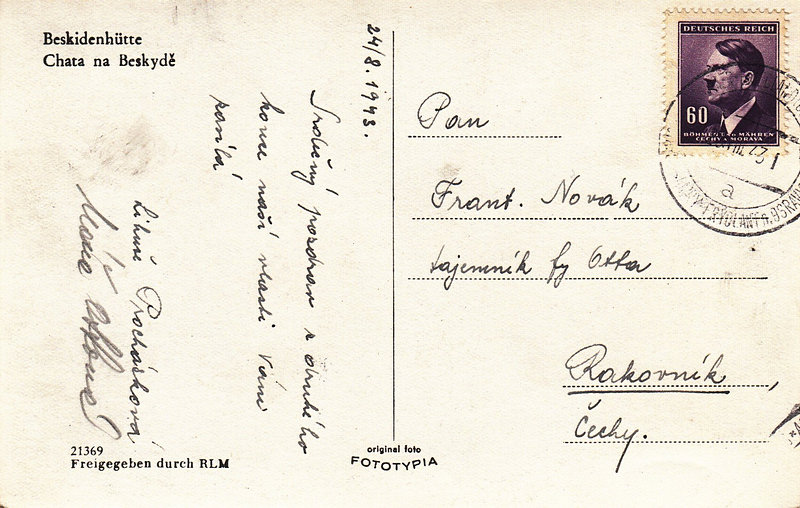 Beskidenhütte
Chata na Beskydě
24/8. 1943.
Srdečný pozdrav z druhého
konce naší vlasti Vám
Libuše Procházková
21369
Freigegeben durch RLM
original foto
FOTOTYPIA
DEUTSCHES REICH
60
BÖHMEN u. MÄHREN
ČECHY a MORAVA
a
Pan
Frant. Novák
tajemník fy Otta
Rakovník,
Čechy.